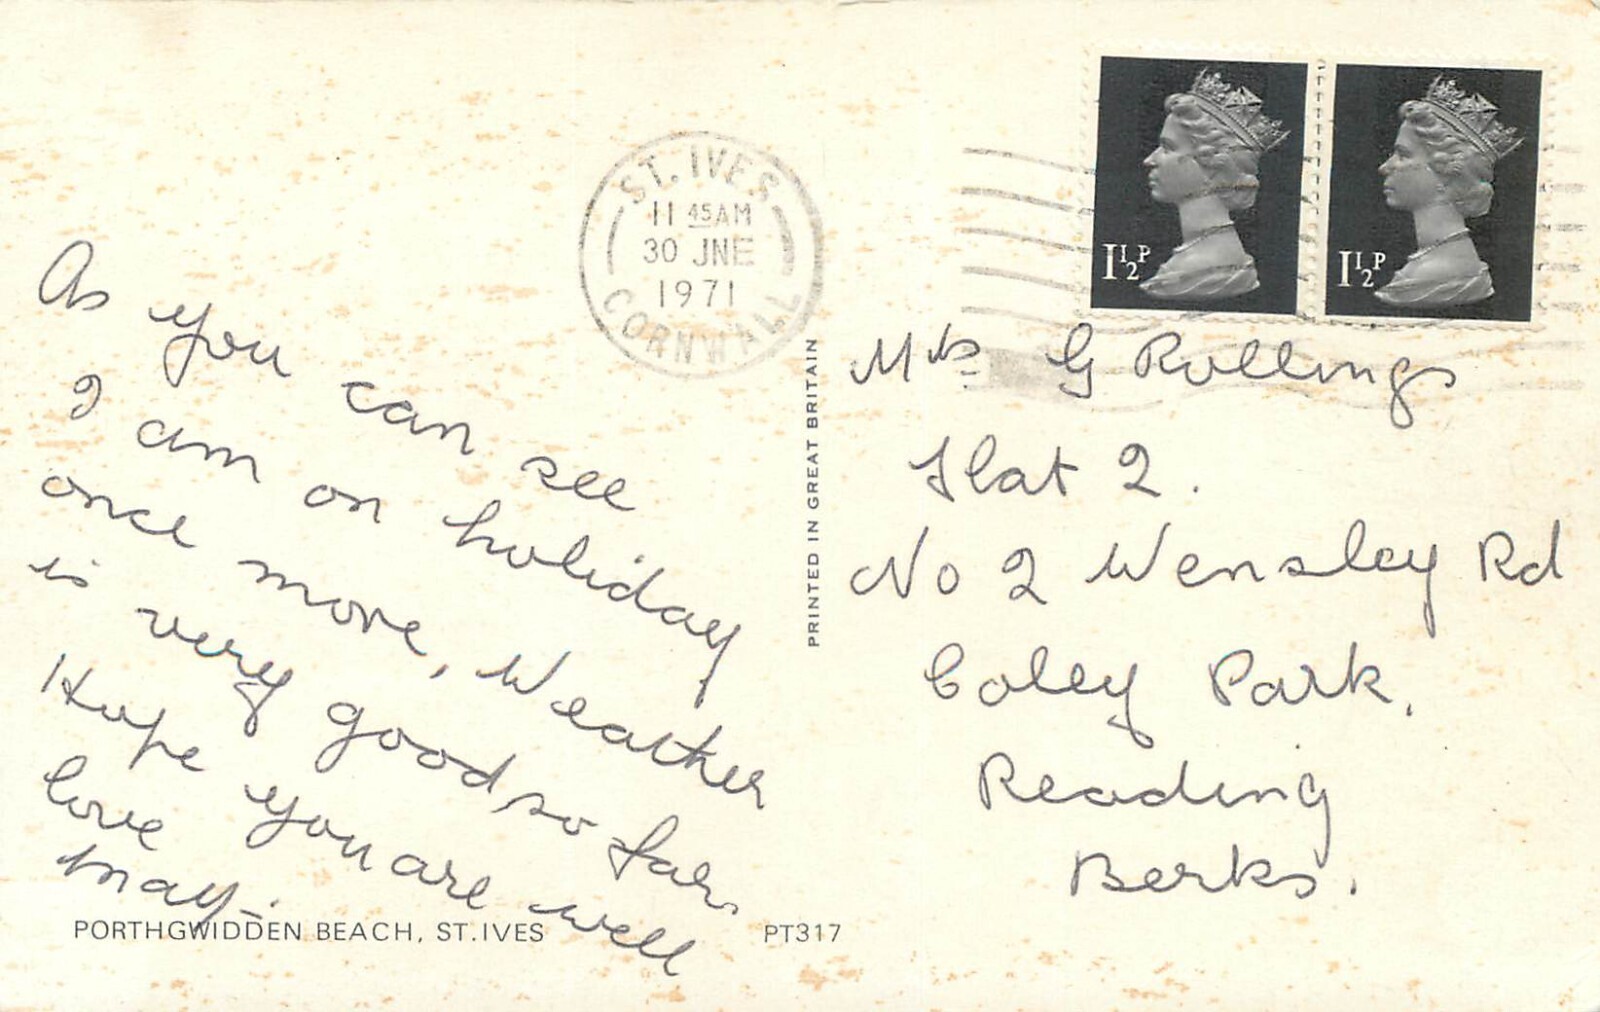 ST. IVES
11 45AM
30 JNE
1971
CORNWALL
1½P
1½P
As you can see
I am on holiday
once more, Weather
is very good so far.
Hope you are well
love
May.
PRINTED IN GREAT BRITAIN
Mrs G Rollings
Flat 2.
No 2 Wensley Rd
Coley Park,
Reading
Berks.
PORTHGWIDDEN BEACH, ST.IVES
PT317